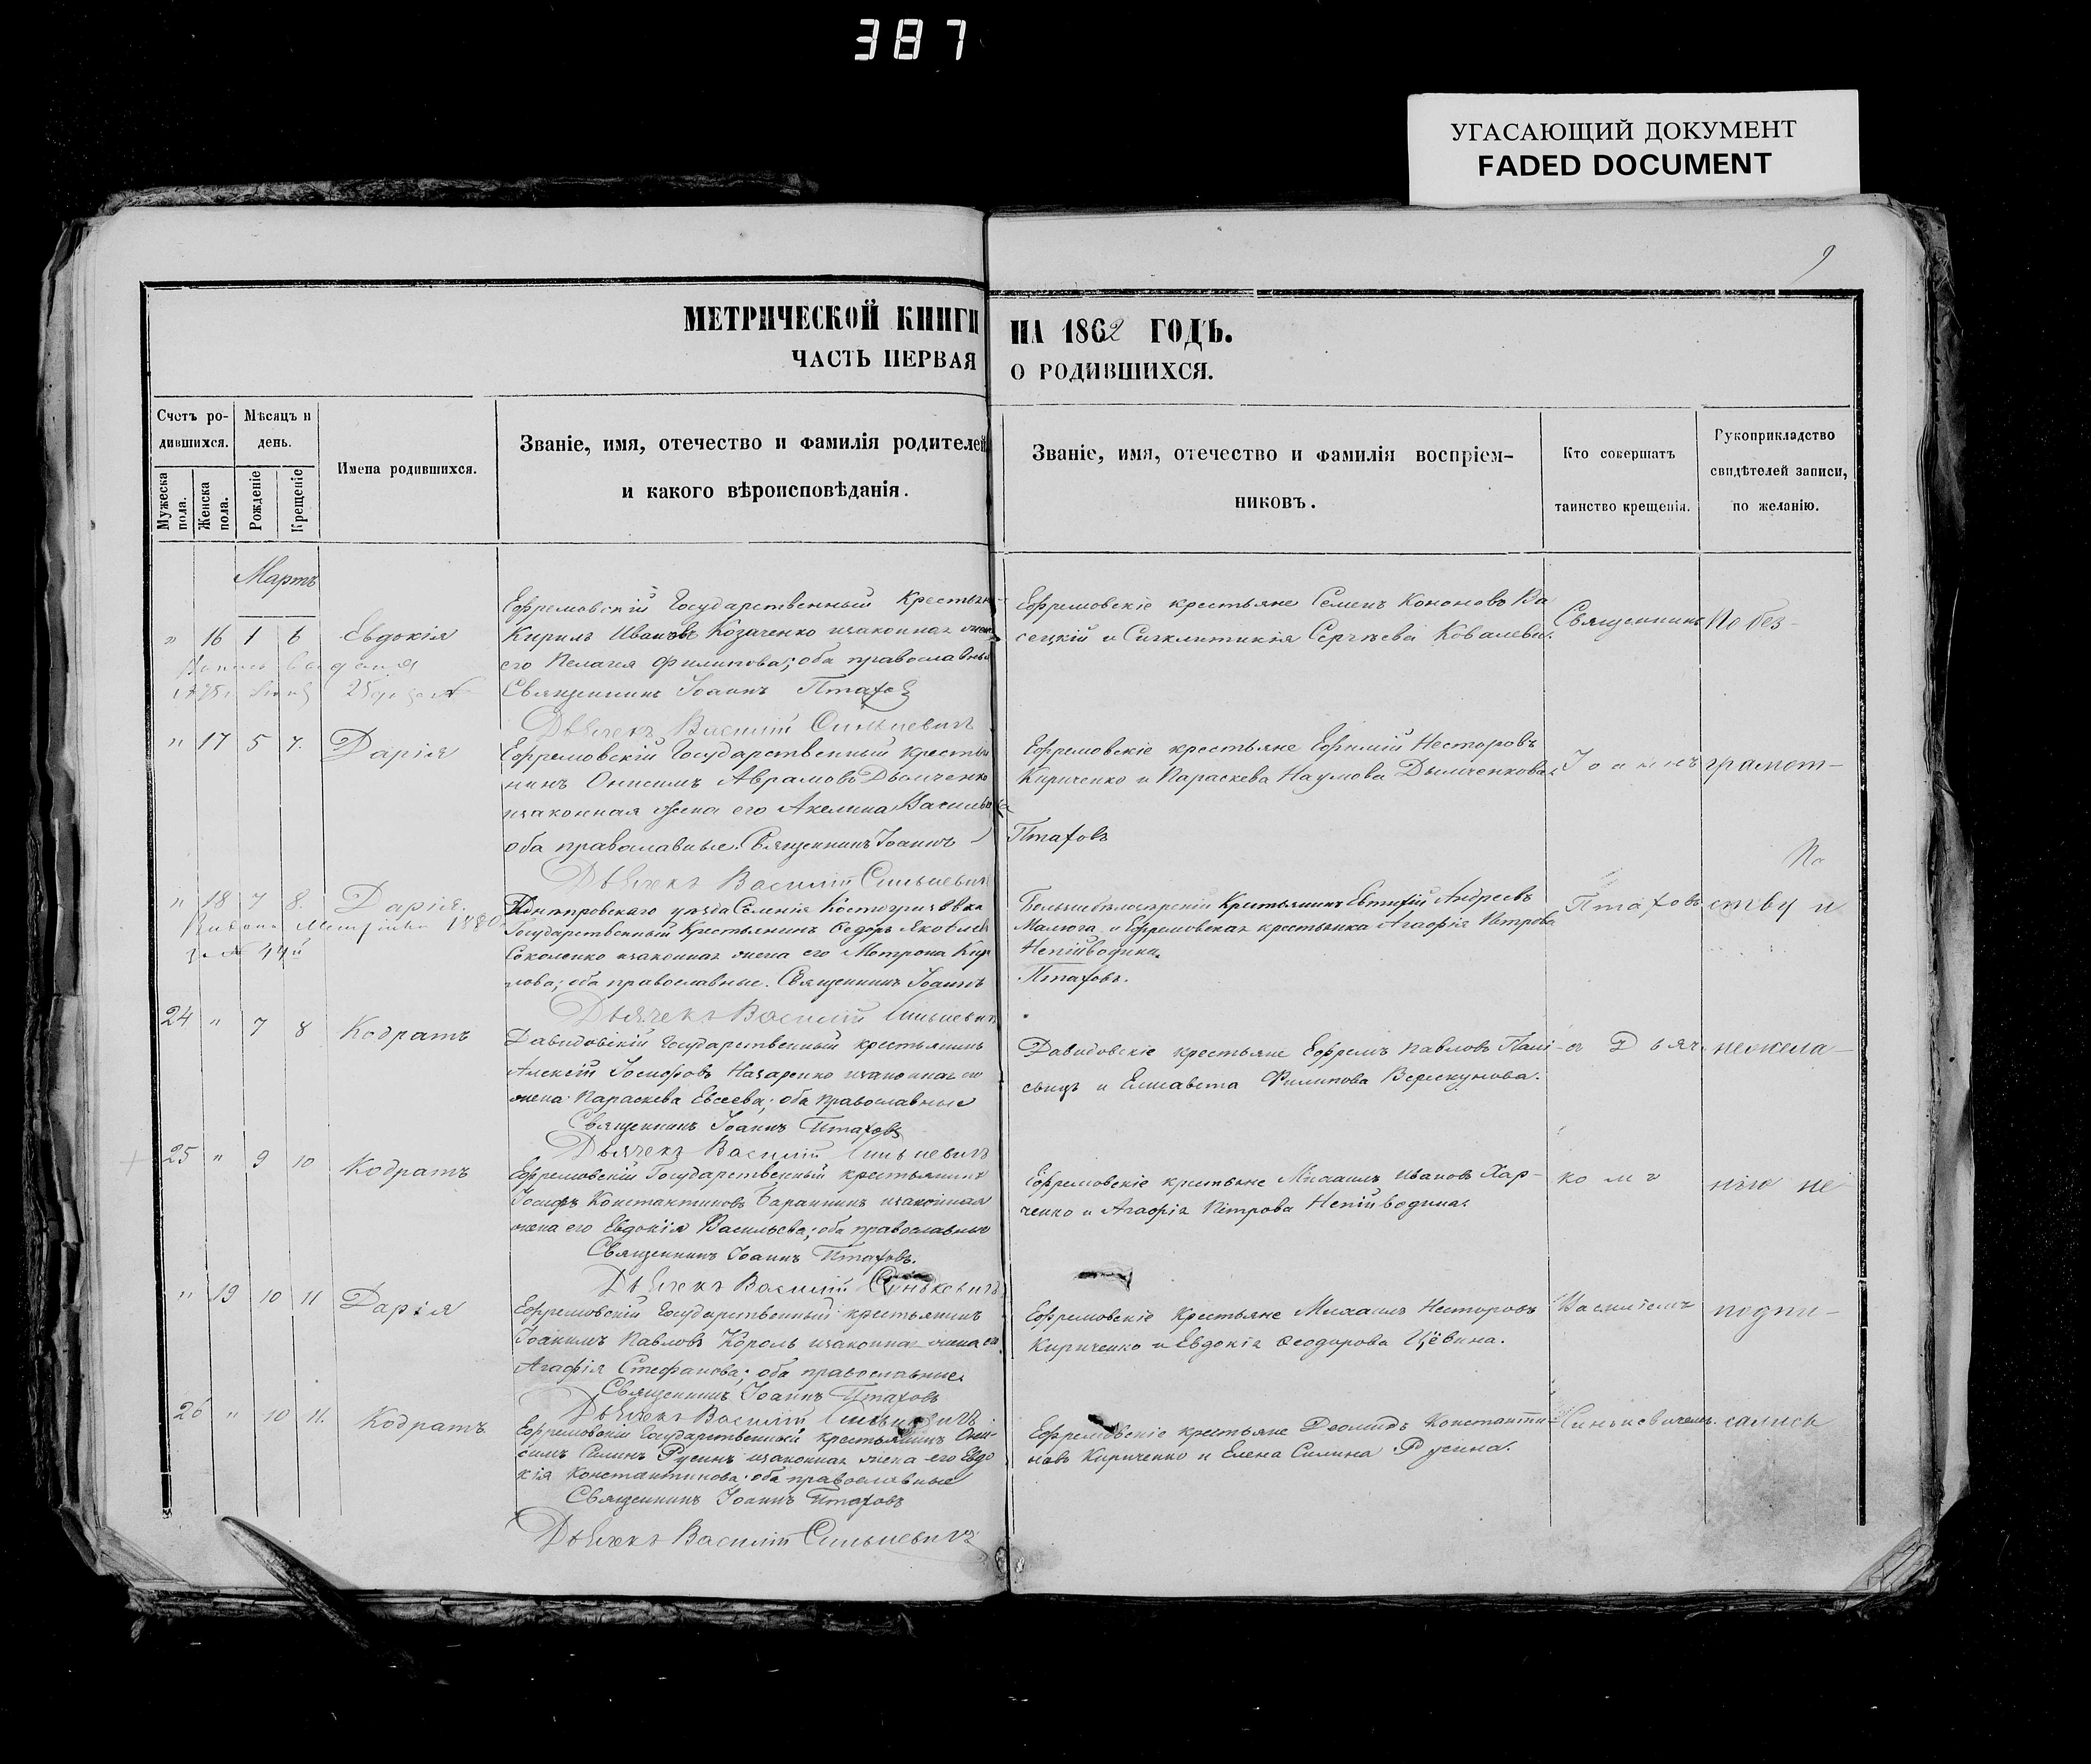 387
УГАСАЮЩИЙ ДОКУМЕНТ
FADED DOCUMENT
9
МЕТРИЧЕСКОЙ КНИГИ НА 1862 ГОДЪ.
ЧАСТЬ ПЕРВАЯ О РОДИВШИХСЯ.
Счетъ ро-
дившихся.
Мужеска пола.
Женска пола.
Мѣсяцъ и
день.
Рожденіе
Крещеніе
Имена родившихся.
Званіе, имя, отечество и фамилія родителей
и какого вѣроисповѣданія.
Званіе, имя, отечество и фамилія воспріем-
никовъ.
Кто совершатъ
таинство крещенія.
Рукоприкладство
свидѣтелей записи,
по желанію.
Мартъ
" 16 1 6 Евдокія
Ефремовскій Государственный Крестьян
Кирилъ Ивановъ Козаченко изаконная жена
его Пелагея Филипова; оба православные
Священникъ Іоаннъ Птаховъ
Дьячекъ Василій Синькевичъ
Ефремовскіе крестьяне Семенъ Кононовъ Ва
сецкій и Сигклитикія Сергѣева Ковалева.
Священникъ
По без-
" 17 5 7. Дарія
Ефремовскій Государственный крестья
нинъ Онисимъ Аврамовъ Дымченко
изаконная жена его Акелина Васильева
оба православные. Священникъ Іоаннъ Птаховъ
Дьячекъ Василій Синькевичъ
Ефремовскіе крестьяне Ефимій Несторовъ
Кириченко и Параскева Наумова Дымченкова
Іоаннъ
грамот-
По
" 18 7 8. Дарія.
за № 44й
Днѣпровскаго уѣзда Селенія Костогризовка
Государственный Крестьянинъ Ѳедоръ Яковлевъ
Соколенко изаконная жена его Мотрона Кир
лова; оба православные. Священникъ Іоаннъ Птаховъ.
Дьячекъ Василій Синькевичъ
Большебѣлозерскій Крестьянинъ Евтихій Андреевъ
Малюга и Ефремовская крестьянка Агафія Петрова
Непійводина.
Птаховъ
ству и
24 " 7 8 Кодратъ
Давидовскій Государственный крестьянинъ
Алексій Іосифовъ Назаренко изаконная его
жена Параскева Евсеева; оба православные
Священникъ Іоаннъ Птаховъ
Дьячекъ Василій Синькевичъ
Давидовскіе крестьяне Ефремъ Павловъ Палі-
Елисавета Филипова Верескунова.
съ Дьяч
нежела-
25 " 9 10 Кодратъ
Ефремовскій Государственный крестьянинъ
Іосифъ Константиновъ Баранникъ изаконная
жена его Евдокія Васильева; оба православные
Священникъ Іоаннъ Птаховъ.
Дьячекъ Василій Синькевичъ
Ефремовскіе крестьяне Михаилъ Ивановъ Хар-
ченко и Агафія Петрова Непійводина.
комъ
нію не
" 19 10 11 Дарія
Ефремовскій Государственный крестьянинъ
Іоакимъ Павловъ Король изаконная жена его
Агафія Стефанова; оба православные.
Священникъ Іоаннъ Птаховъ
Дьячекъ Василій Синькевичъ
Ефремовскіе Крестьяне Михаилъ Несторовъ
Кириченко и Евдокія Ѳеодорова Цёвина.
Василіемъ
подпи-
26 " 10 11. Кодратъ
Ефремовскій Государственный крестьянинъ Они-
симъ Силинъ Русинъ изаконная жена его Евдо
кія Константинова; оба православные
Священникъ Іоаннъ Птаховъ
Дьячекъ Василій Синькевичъ
Ефремовскіе крестьяне Деомидъ Константи-
новъ Кириченко и Елена Силина Русина.
Синькевичемъ.
сались